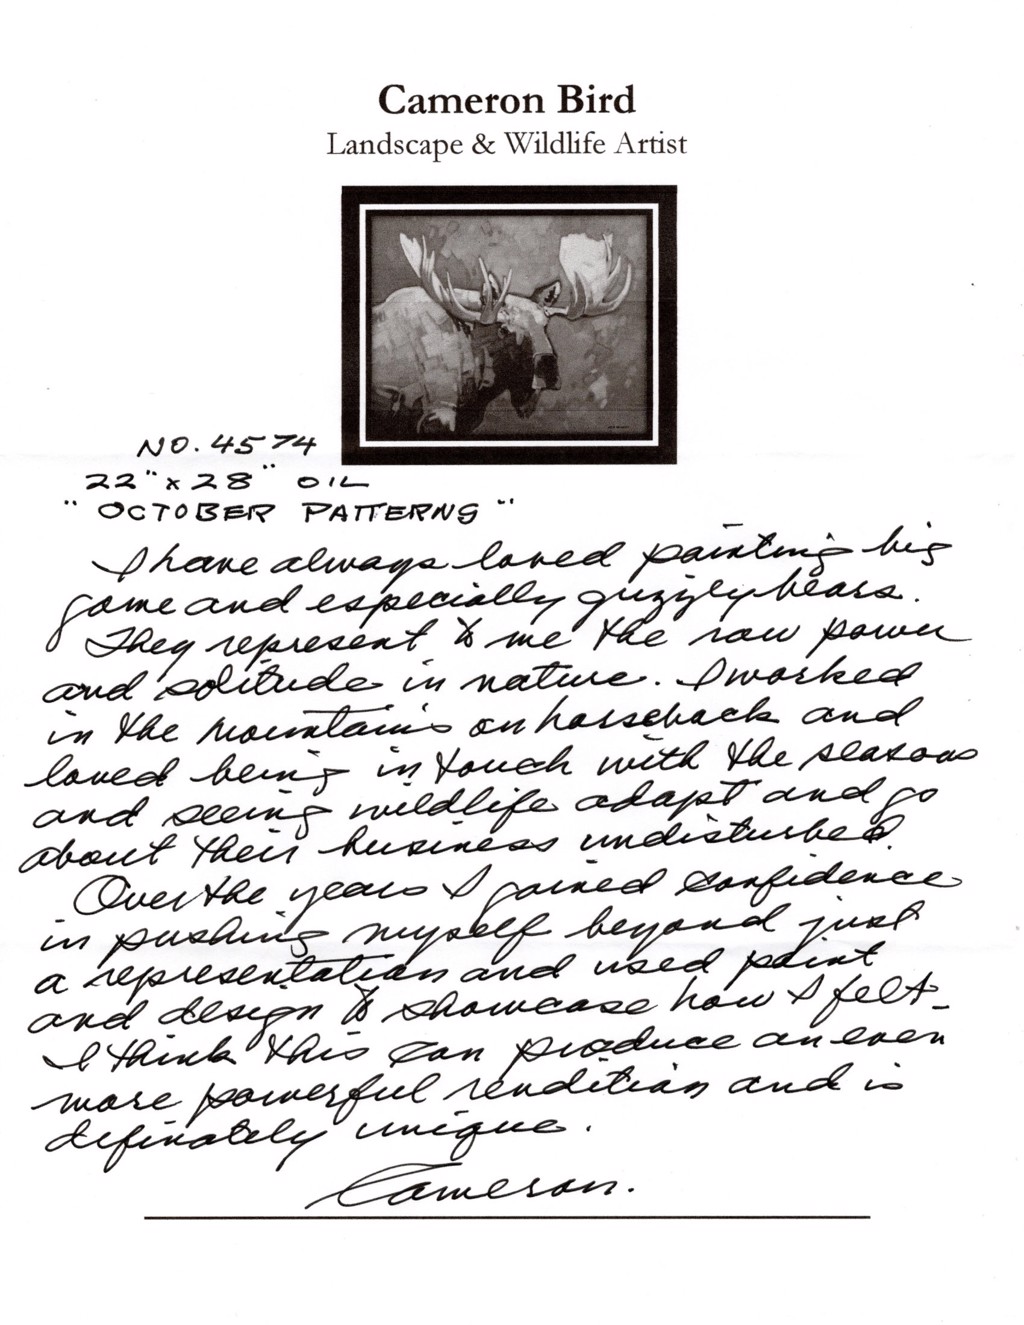 Cameron Bird
Landscape & Wildlife Artist
NO. 4574
22" x 28" OIL
"OCTOBER PATTERNS"
I have always loved painting big
game and especially grizzly bears.
They represent to me the raw power
and solitude in nature. I worked
in the mountains on horseback and
loved being in touch with the seasons
and seeing wildlife adapt and go
about their business undisturbed.
Over the years I gained confidence
in pushing myself beyond just
a representation and used paint
and design to showcase how I felt-
I think this can produce an even
more powerful rendition and is
definately unique.
Cameron.